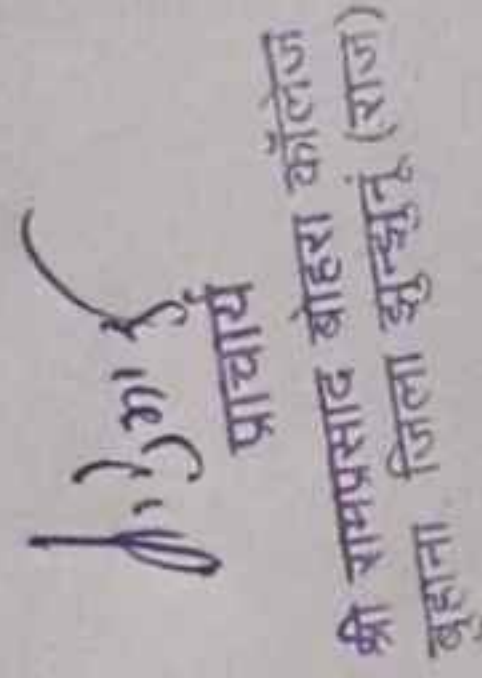 प्राचार्य
श्री रामप्रसाद बोहरा कॉलेज
बुहाना जिला झुन्झुनूं (राज)